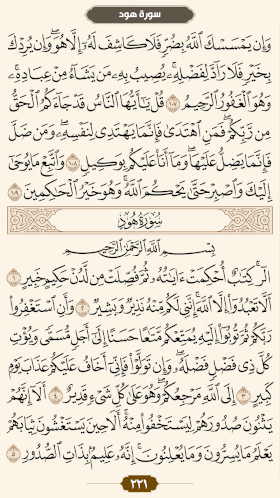 سورة هود
وَإِن يَمْسَسْكَ ٱللَّهُ بِضُرٍّ فَلَا كَاشِفَ لَهُۥٓ إِلَّا هُوَ ۖ وَإِن يُرِدْكَ
بِخَيْرٍ فَلَا رَآدَّ لِفَضْلِهِۦ ۚ يُصِيبُ بِهِۦ مَن يَشَآءُ مِنْ عِبَادِهِۦ ۚ
وَهُوَ ٱلْغَفُورُ ٱلرَّحِيمُ ١٠٧ قُلْ يَـٰٓأَيُّهَا ٱلنَّاسُ قَدْ جَآءَكُمُ ٱلْحَقُّ
مِن رَّبِّكُمْ ۖ فَمَنِ ٱهْتَدَىٰ فَإِنَّمَا يَهْتَدِى لِنَفْسِهِۦ ۖ وَمَن ضَلَّ
فَإِنَّمَا يَضِلُّ عَلَيْهَا ۖ وَمَآ أَنَا۠ عَلَيْكُم بِوَكِيلٍ ١٠٨ وَٱتَّبِعْ مَا يُوحَىٰٓ
إِلَيْكَ وَٱصْبِرْ حَتَّىٰ يَحْكُمَ ٱللَّهُ ۚ وَهُوَ خَيْرُ ٱلْحَـٰكِمِينَ ١٠٩
سُورَةُ هُودٍ
بِسْمِ ٱللَّهِ ٱلرَّحْمَـٰنِ ٱلرَّحِيمِ
الٓر ۚ كِتَـٰبٌ أُحْكِمَتْ ءَايَـٰتُهُۥ ثُمَّ فُصِّلَتْ مِن لَّدُنْ حَكِيمٍ خَبِيرٍ ١
أَلَّا تَعْبُدُوٓا۟ إِلَّا ٱللَّهَ ۚ إِنَّنِى لَكُم مِّنْهُ نَذِيرٌ وَبَشِيرٌ ٢ وَأَنِ ٱسْتَغْفِرُوا۟
رَبَّكُمْ ثُمَّ تُوبُوٓا۟ إِلَيْهِ يُمَتِّعْكُم مَّتَـٰعًا حَسَنًا إِلَىٰٓ أَجَلٍ مُّسَمًّى وَيُؤْتِ
كُلَّ ذِى فَضْلٍ فَضْلَهُۥ ۖ وَإِن تَوَلَّوْا۟ فَإِنِّىٓ أَخَافُ عَلَيْكُمْ عَذَابَ يَوْمٍ
كَبِيرٍ ٣ إِلَى ٱللَّهِ مَرْجِعُكُمْ ۖ وَهُوَ عَلَىٰ كُلِّ شَىْءٍ قَدِيرٌ ٤ أَلَآ إِنَّهُمْ
يَثْنُونَ صُدُورَهُمْ لِيَسْتَخْفُوا۟ مِنْهُ ۚ أَلَا حِينَ يَسْتَغْشُونَ ثِيَابَهُمْ
يَعْلَمُ مَا يُسِرُّونَ وَمَا يُعْلِنُونَ ۚ إِنَّهُۥ عَلِيمٌۢ بِذَاتِ ٱلصُّدُورِ ٥
٢٢١